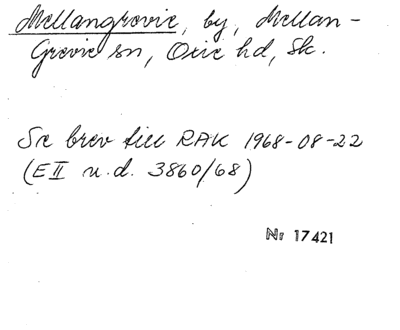 Mellangrevie, by, Mellan-
Grevie sn, Oxie hd, Sk.
Se brev till RAK 1968-08-22
(E II u.d. 3860/68)
Nr 17421